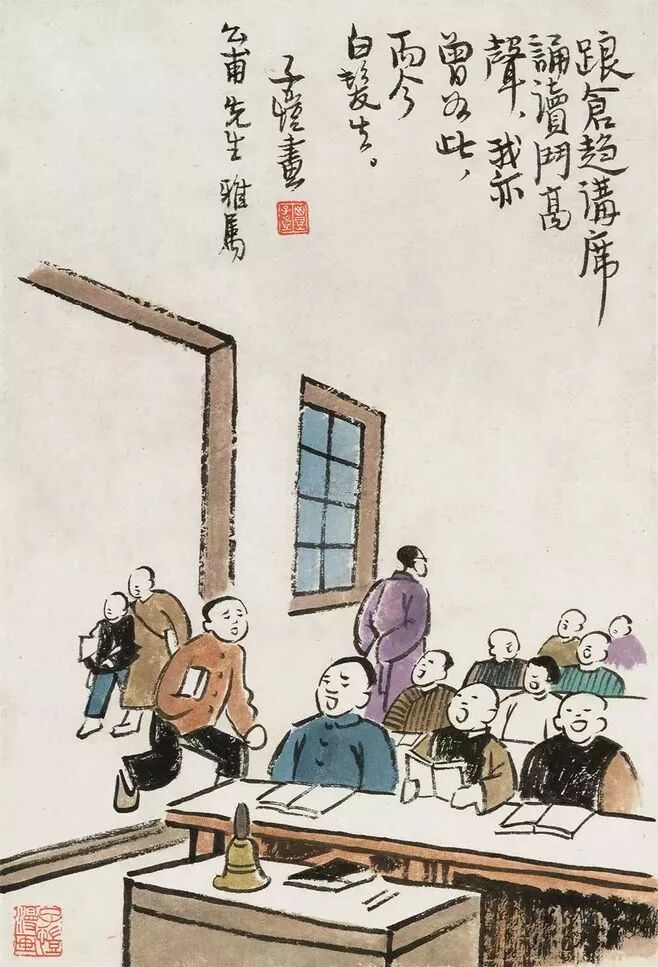 踉倉趋講席
誦讀鬥高
聲，我亦
曾如此，
而今
白髮生。
子愷畫
公甫先生 雅屬
子愷漫畫